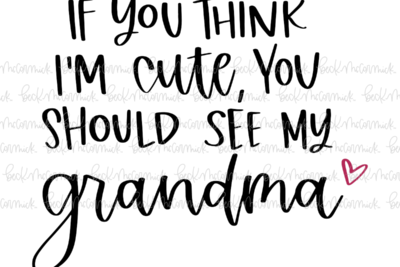 IF YOU THINK
I'M cute, YOU
SHOULD SEE MY
grandma